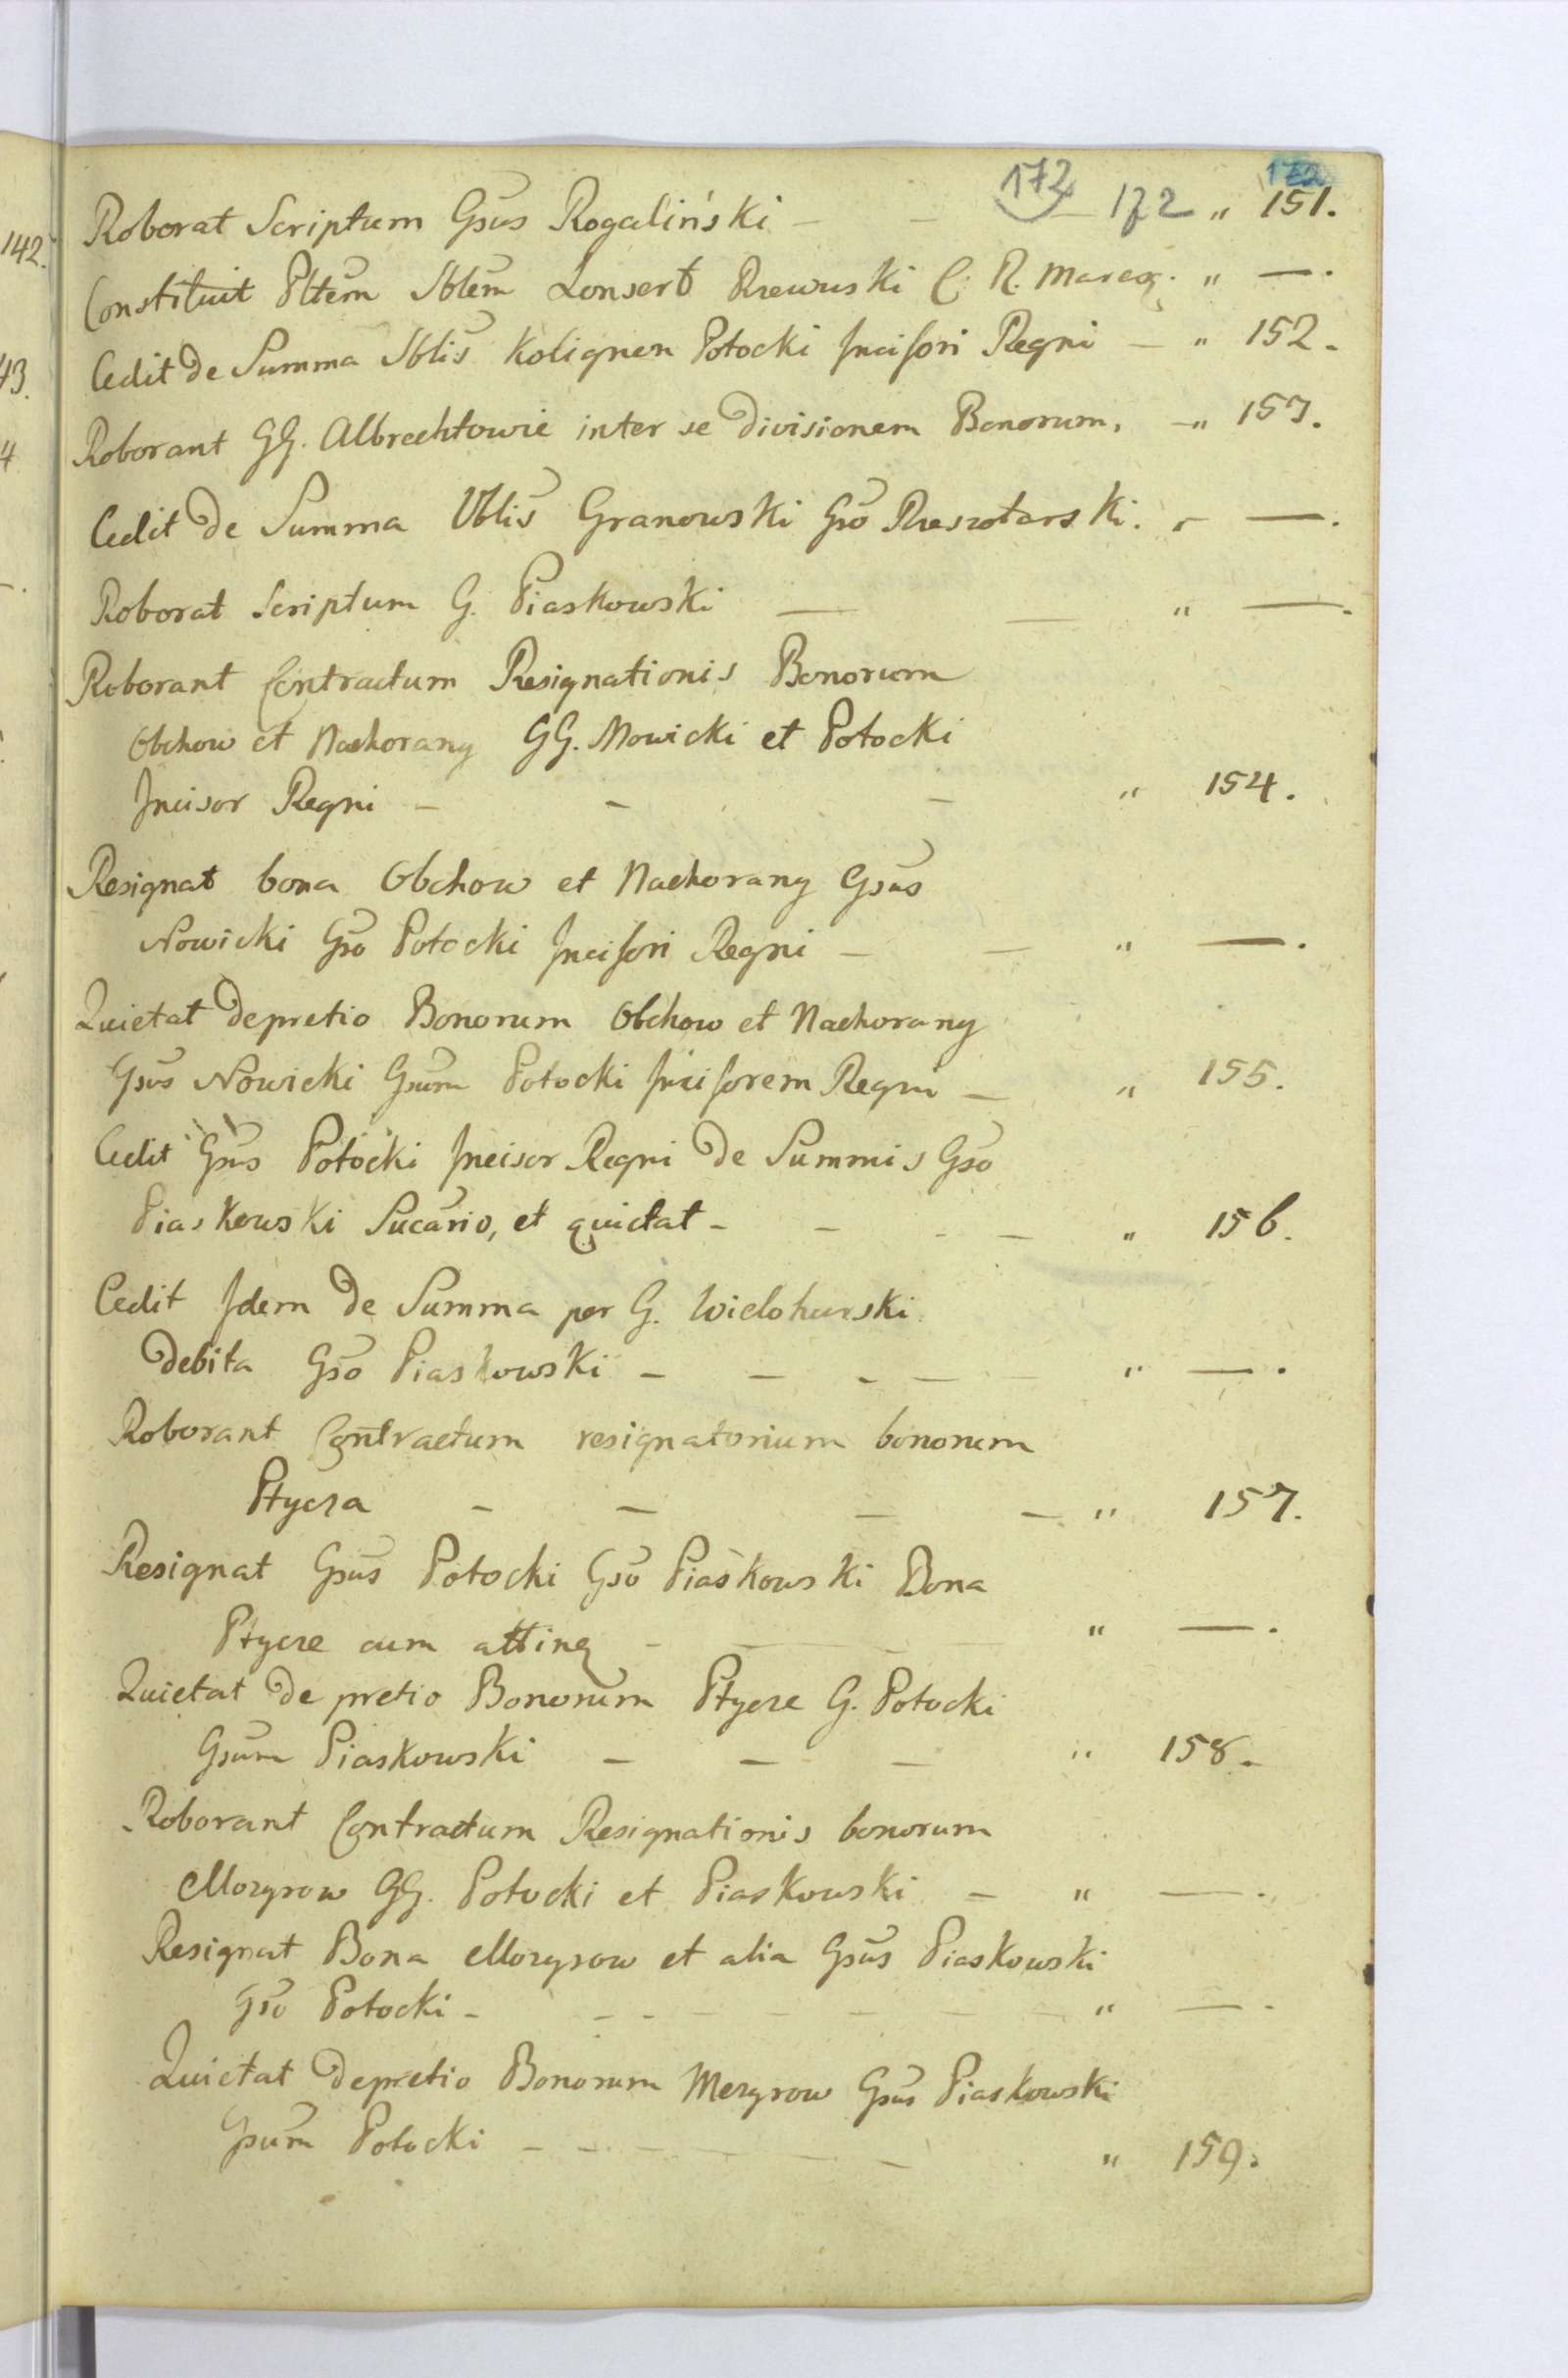 172 172
Roborat Scriptum Gsus Rogaliński — — — 172 „ 151.
142.
Constituit Pltem Iblem Lonsert Rzewuski C. R. Mareg. „ —.
Cedit de Summa Iblis Kolignen Potocki Incisori Regni — „ 152.
43.
Roborant GG. Albrechtowie inter se Divisionem Bonorum. — „ 153.
4
Cedit de Summa Iblis Granowski Gso Rzeszotarski. „ —.
Roborat Scriptum G. Piaskowski — — „ —.
Roborant Contractum Resignationis Bonorum
Obchow et Nachorany GG. Nowicki et Potocki
Incisor Regni — — — „ 154.
Resignat bona Obchow et Nachorany Gsus
Nowicki Gso Potocki Incisori Regni — — „ —.
Quietat depretio Bonorum Obchow et Nachorany
Gsus Nowicki Gsum Potocki Incisorem Regni — „ 155.
Cedit Gsus Potocki Incisor Regni de Summis Gso
Piaskowski Sucario, et quietat — — — — „ 156.
Cedit Idem de Summa per G. Wielohurski
Debita Gso Piaskowski — — — — — „ —.
Roborant Contractum resignatorium bonorum
Ptycza — — — — „ 157.
Resignat Gsus Potocki Gso Piaskowski Bona
Ptycze cum atting — — — „ —.
Quietat de pretio Bonorum Ptycze G. Potocki
Gsum Piaskowski — — — „ 158.
Roborant Contractum Resignationis bonorum
Mozgrow GG. Potocki et Piaskowski — „ —.
Resignat Bona Mozgrow et alia Gsus Piaskowski
Gso Potocki — — — — — — — — „ —.
Quietat depretio Bonorum Mozgrow Gsus Piaskowski
Gsum Potocki — — — — — — „ 159.